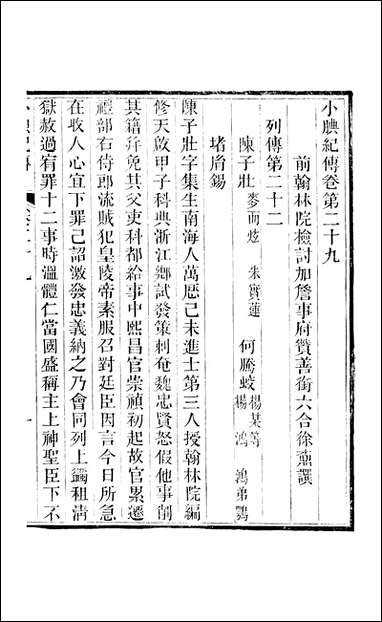 小腆紀傳卷第二十九
前翰林院檢討加詹事府贊善銜六合徐鼒譔
列傳第二十二
陳子壯 麥而炫 朱實蓮 何騰蛟 楊某等 楊鴻 鴻弟鸚
堵胤錫
陳子壯字集生南海人萬厯己未進士第三人授翰林院編
修天啟甲子科典浙江鄉試發策刺奄魏忠賢怒假他事削
其籍幷免其父吏科都給事中熙昌官崇禎初起故官累遷
禮部右侍郎流賊犯皇陵帝素服召對廷臣因言今日所急
在收人心宜下罪己詔激發忠義納之乃會同列上蠲租淸
獄赦過宥罪十二事時溫體仁當國盛稱主上神聖臣下不